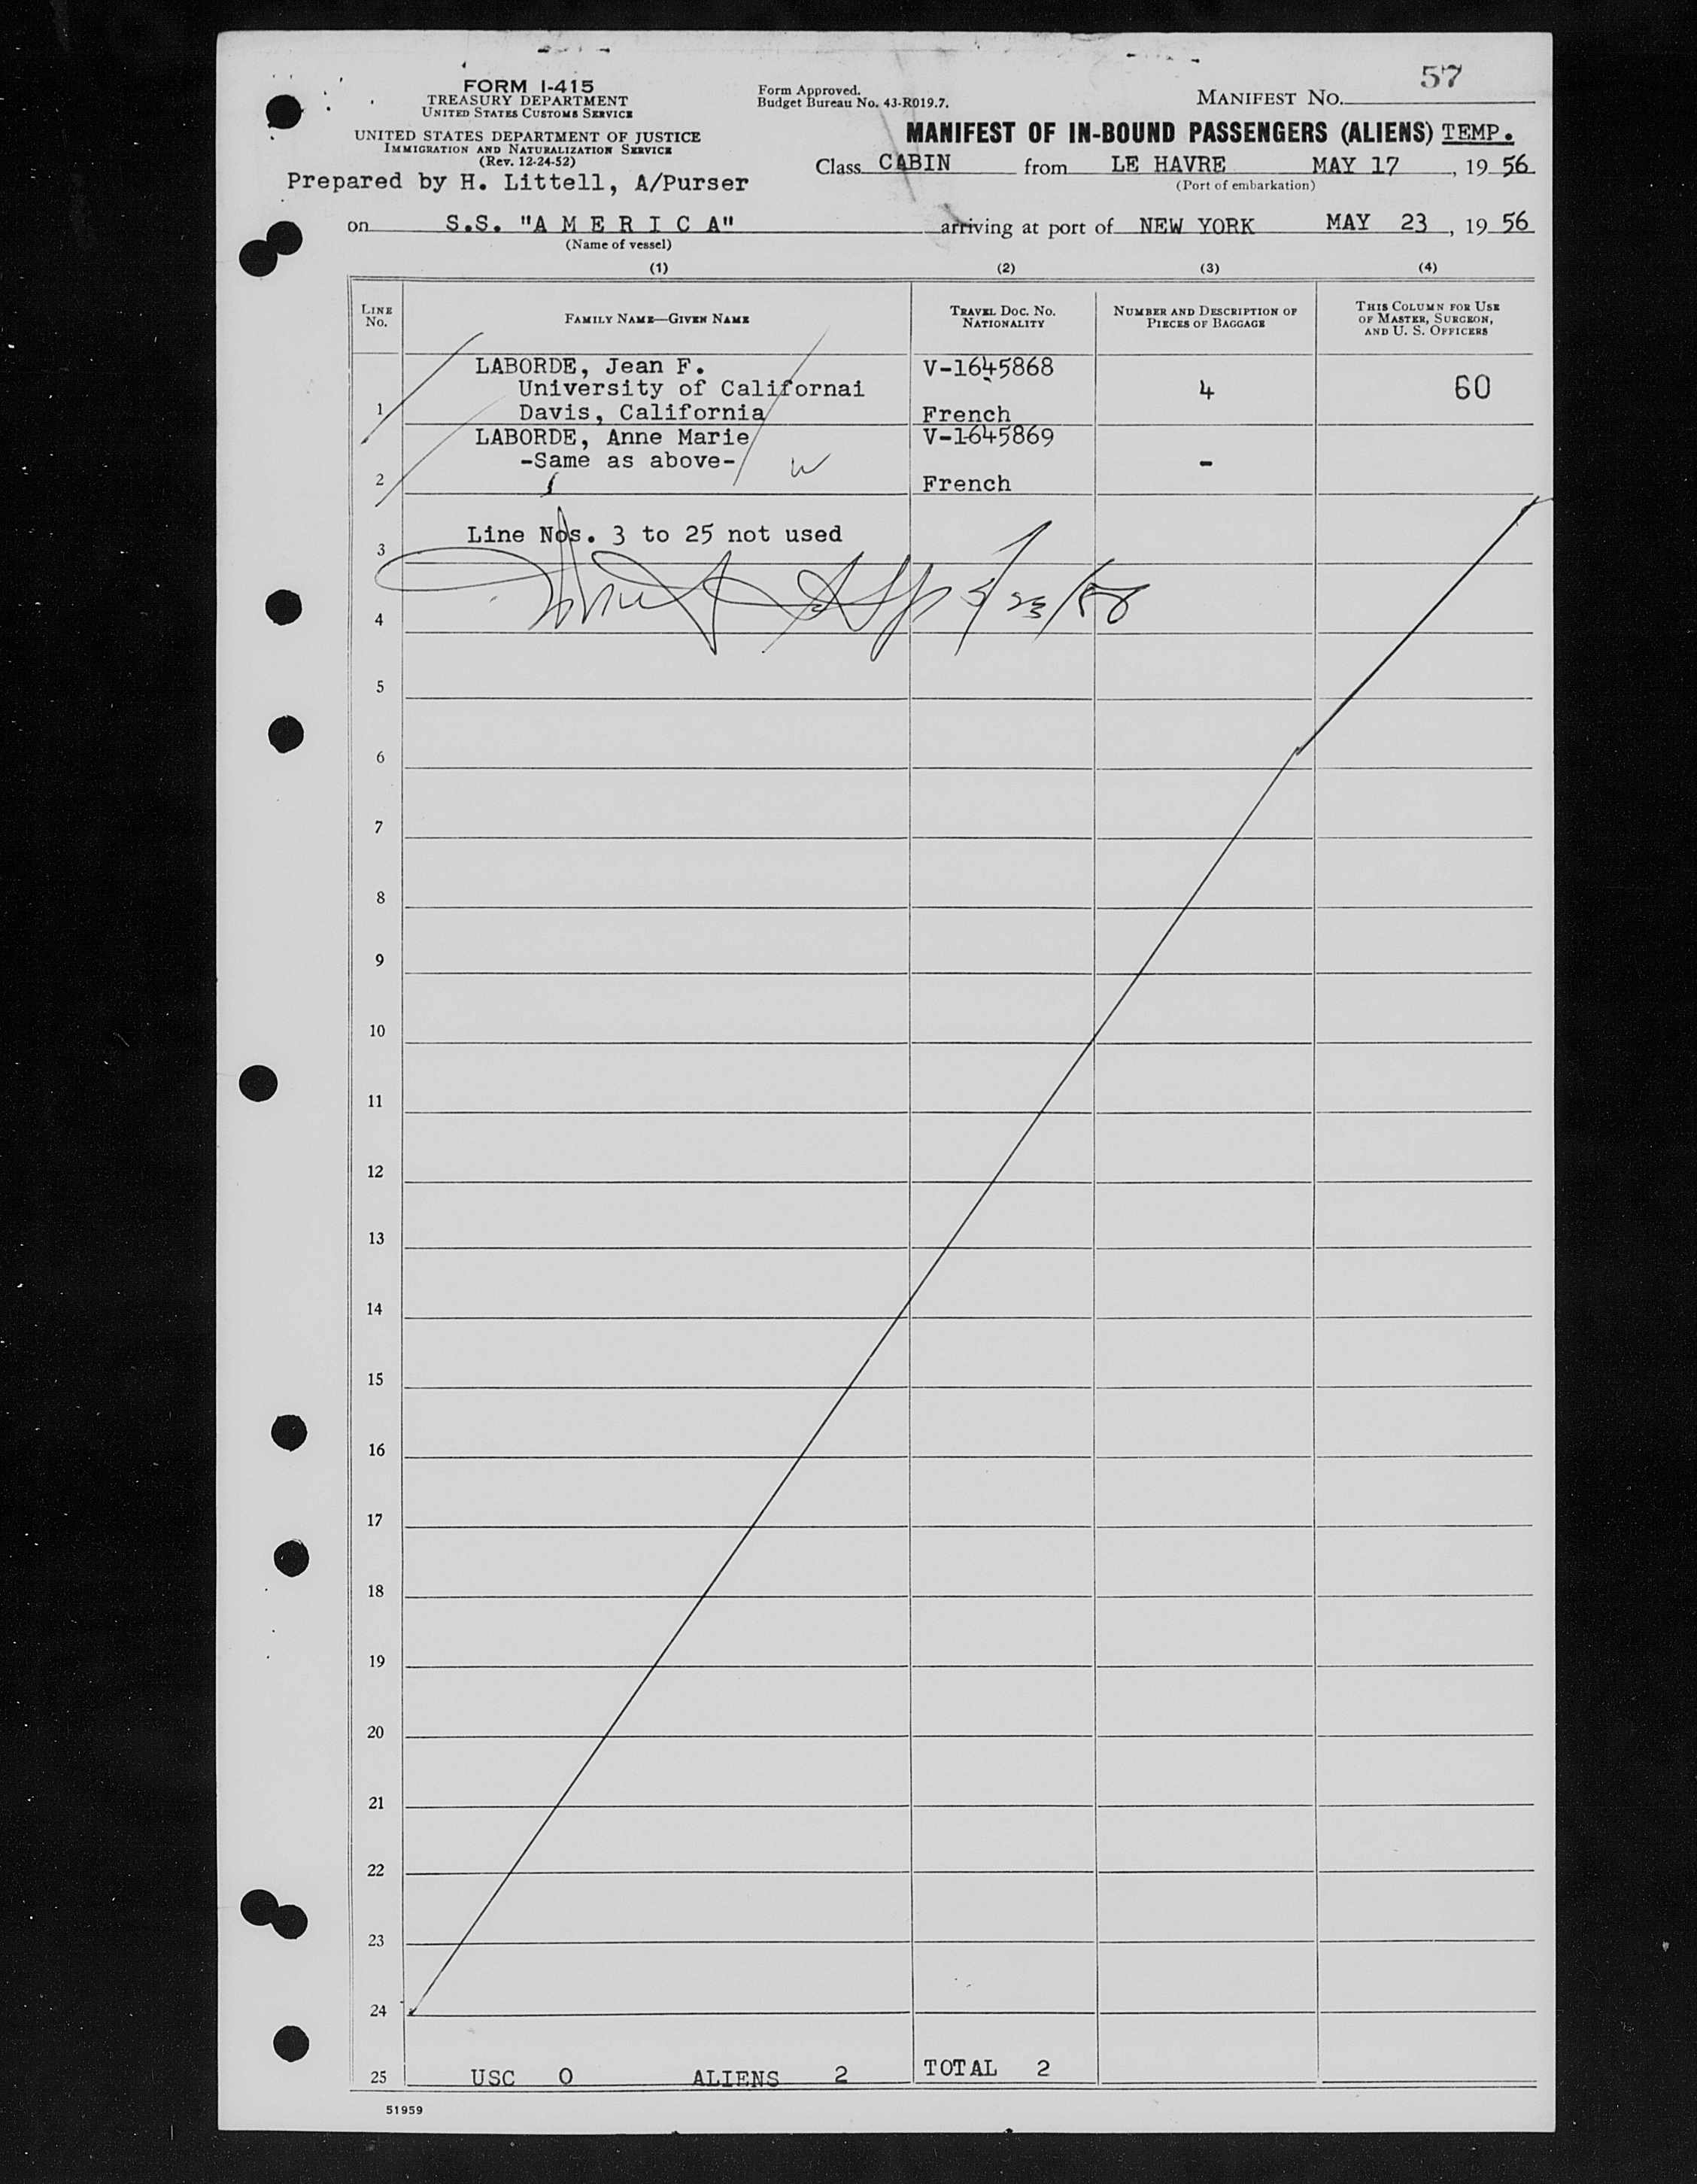 57
FORM I-415
TREASURY DEPARTMENT
UNITED STATES CUSTOMS SERVICE
UNITED STATES DEPARTMENT OF JUSTICE
IMMIGRATION AND NATURALIZATION SERVICE
(Rev. 12-24-52)
Prepared by H. Littell, A/Purser
Form Approved.
Budget Bureau No. 43-R019.7.
MANIFEST NO.
MANIFEST OF IN-BOUND PASSENGERS (ALIENS) TEMP.
Class CABIN from LE HAVRE MAY 17, 1956
(Port of embarkation)
on S.S. "A M E R I C A" arriving at port of NEW YORK MAY 23, 1956
(Name of vessel)
(1) (2) (3) (4)
LINE No. FAMILY NAME—GIVEN NAME TRAVEL DOC. NO. NATIONALITY NUMBER AND DESCRIPTION OF PIECES OF BAGGAGE THIS COLUMN FOR USE OF MASTER, SURGEON, AND U. S. OFFICERS
LABORDE, Jean F. V-1645868
University of Californai 4 60
1 Davis, California French
LABORDE, Anne Marie V-1645869
-Same as above- W -
2 French
Line Nos. 3 to 25 not used
3
4
5
6
7
8
9
10
11
12
13
14
15
16
17
18
19
20
21
22
23
24
25 USC 0 ALIENS 2 TOTAL 2
51959